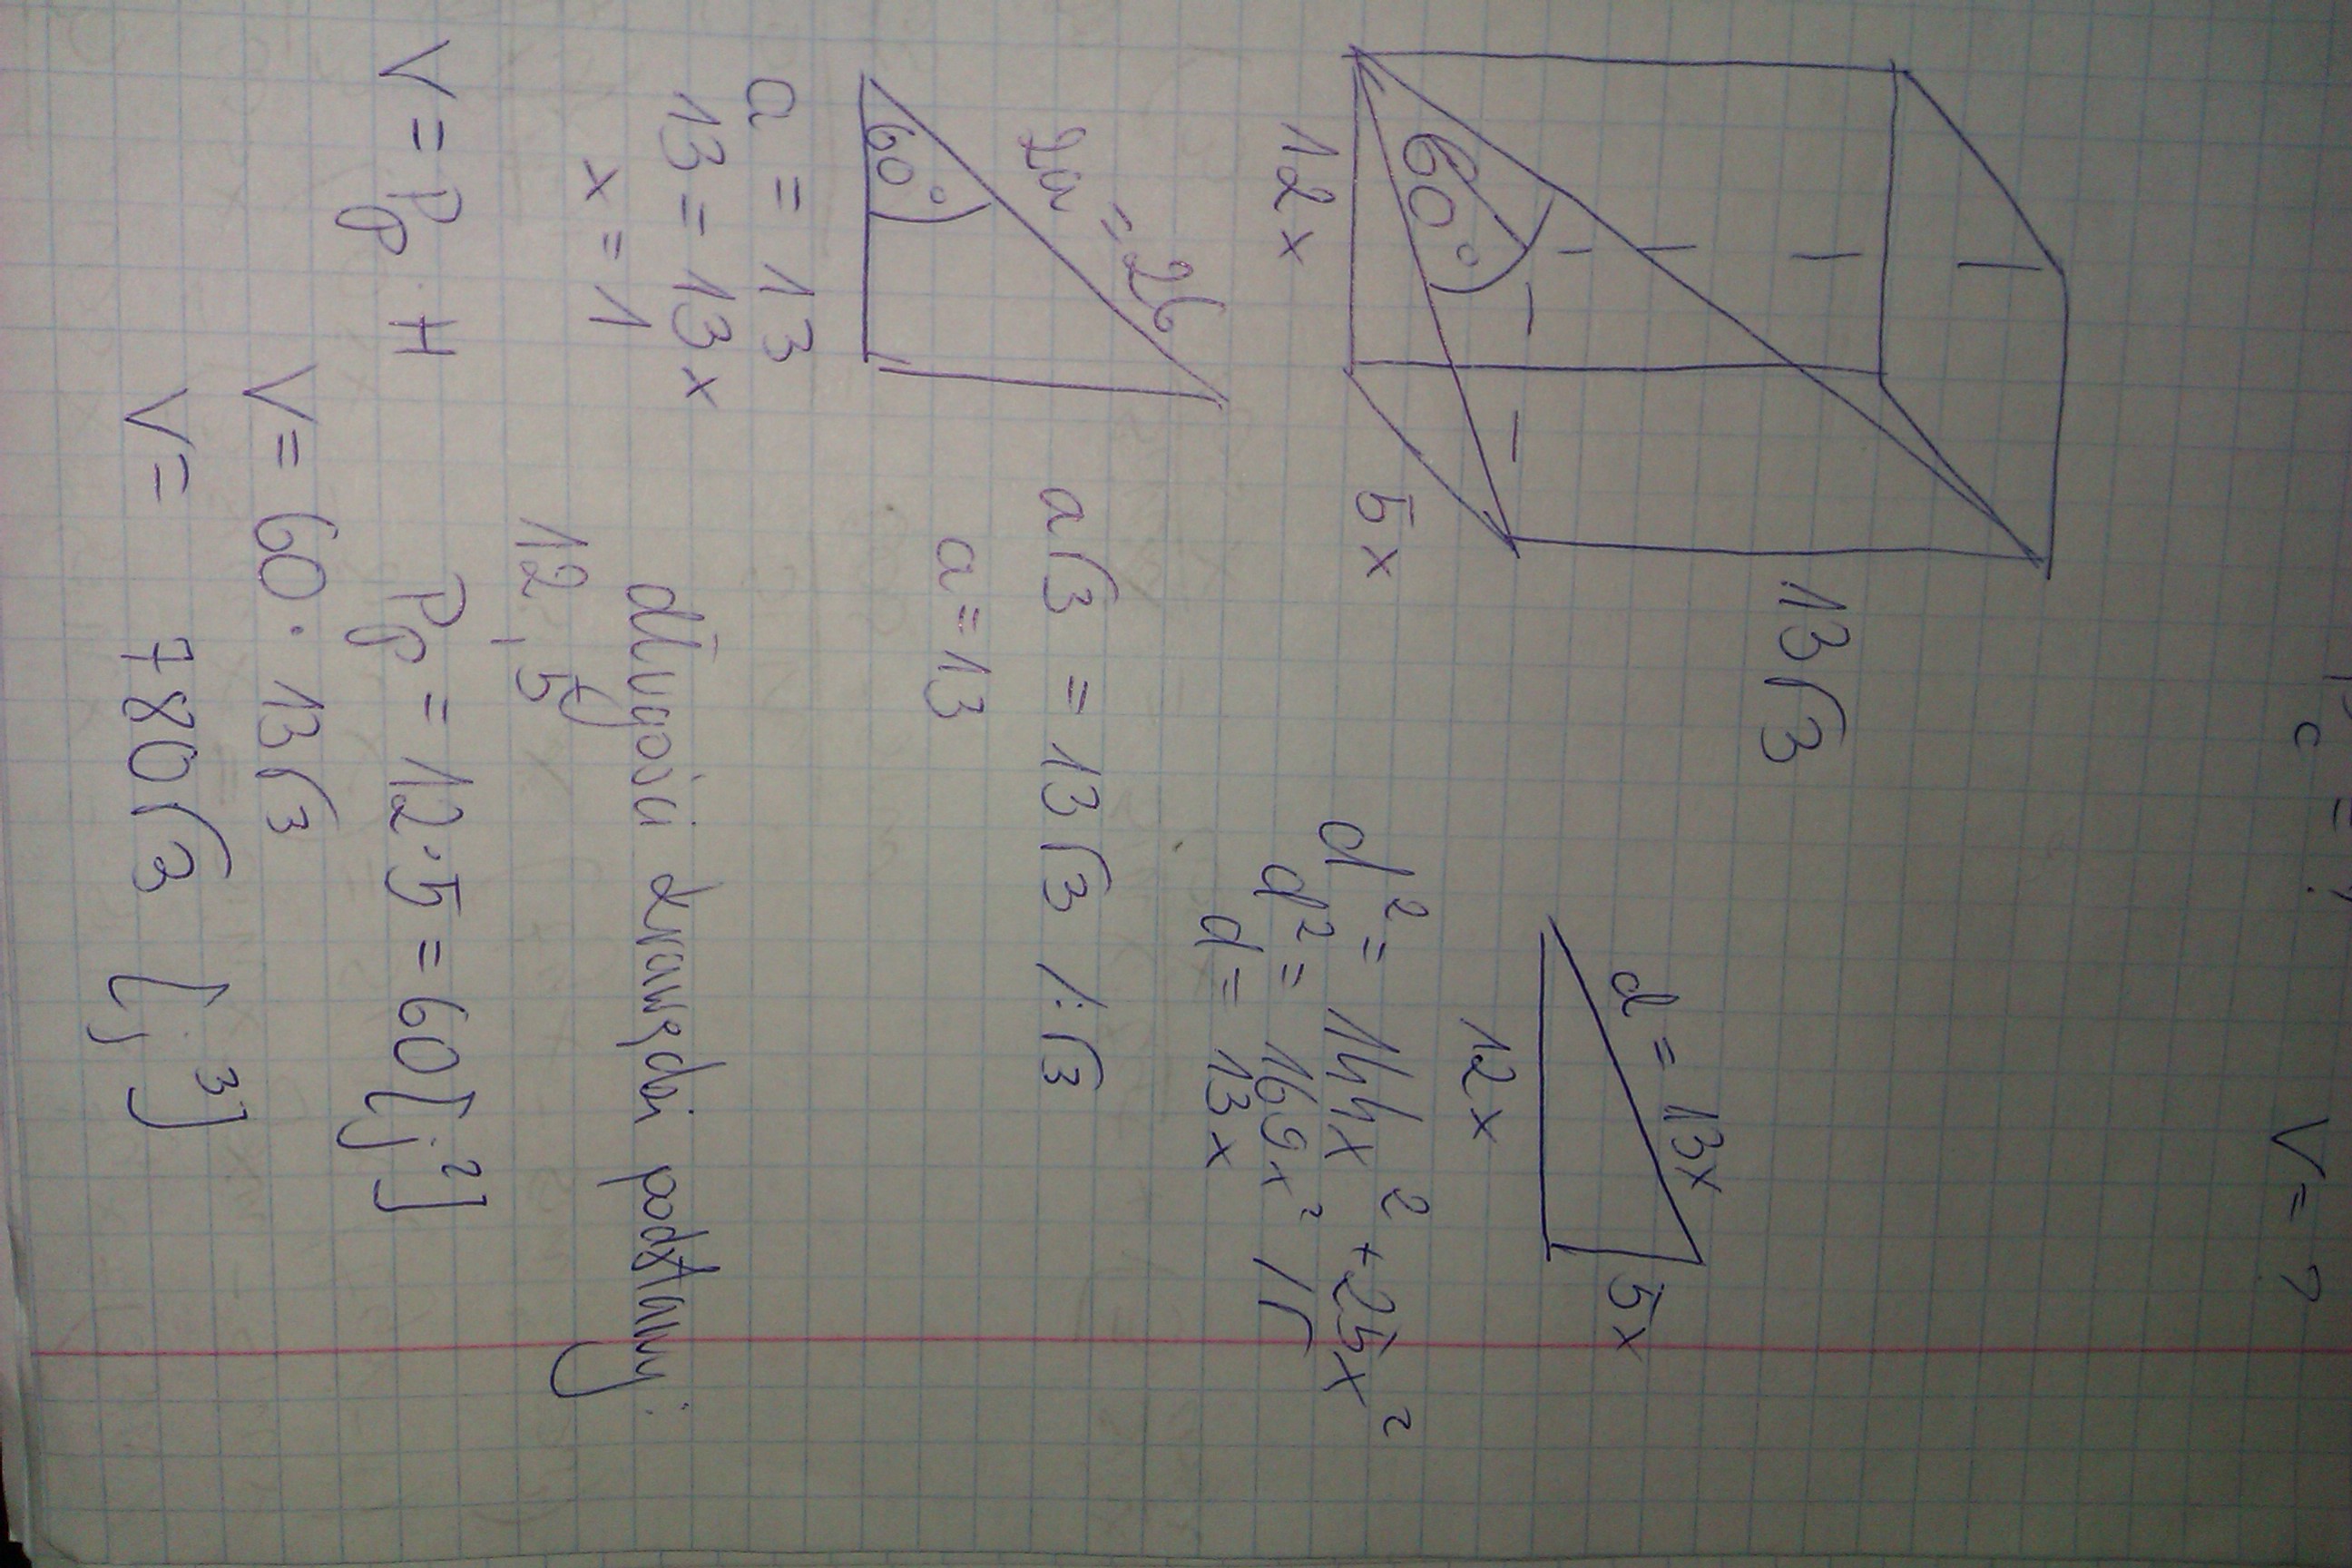 Pc = ?
V = ?
13√3
60°
12x
5x
d = 13x
12x
5x
d² = 144x² + 25x²
d² = 169x² /√
d = 13x
2a = 26
60°
a√3 = 13√3 /:√3
a = 13
a = 13
13 = 13x
x = 1
długości krawędzi podstawy:
12, 5
V = Pp · H
Pp = 12·5 = 60 [j²]
V = 60 · 13√3
V = 780√3 [j³]